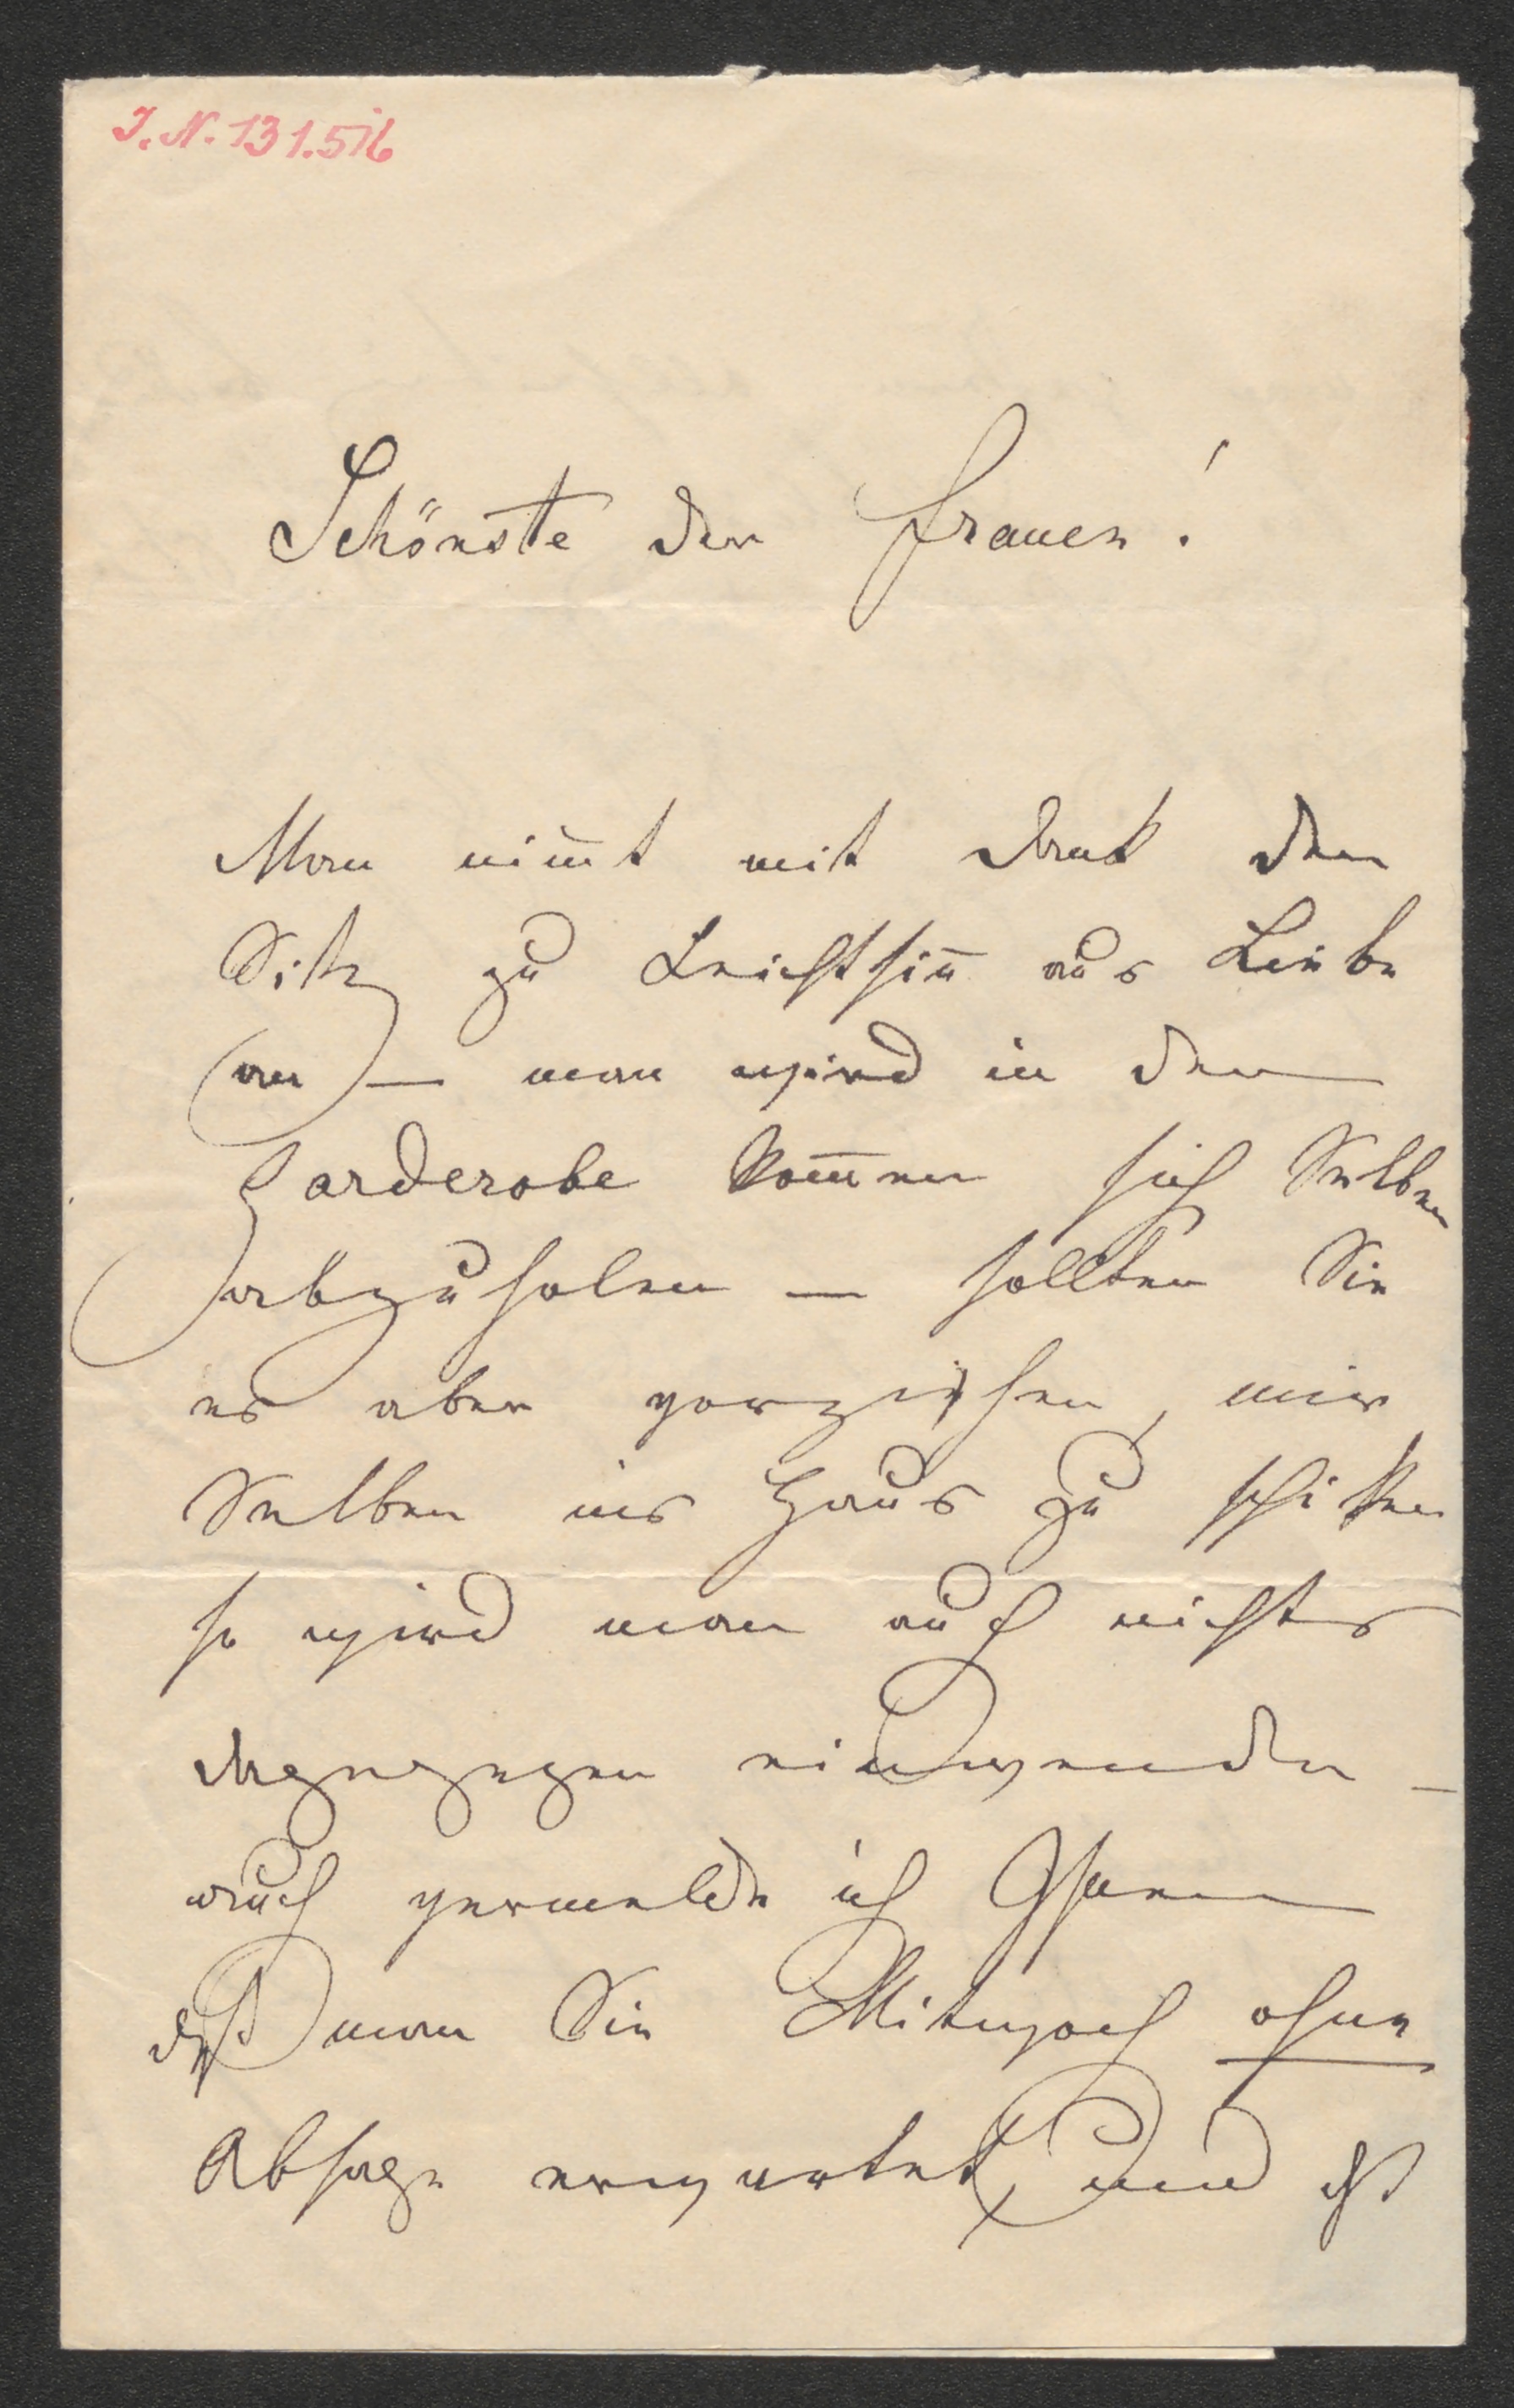 J. N. 131.576
Schönste der Frauen!
Man nim̄t mit Dank den
Sitz zu Leichtsin̄ aus Liebe
an — man wird in der
Garderobe kom̄en sich Selben
abzuholen — sollten Sie
es aber vorziehen, mir
Selben ins Haus zu schiken
so wird man auch nichts
dagegen einwenden —
auch vermelde ich Ihnen
daß man Sie Mittwoch ohne
Absage erwartet, und ist